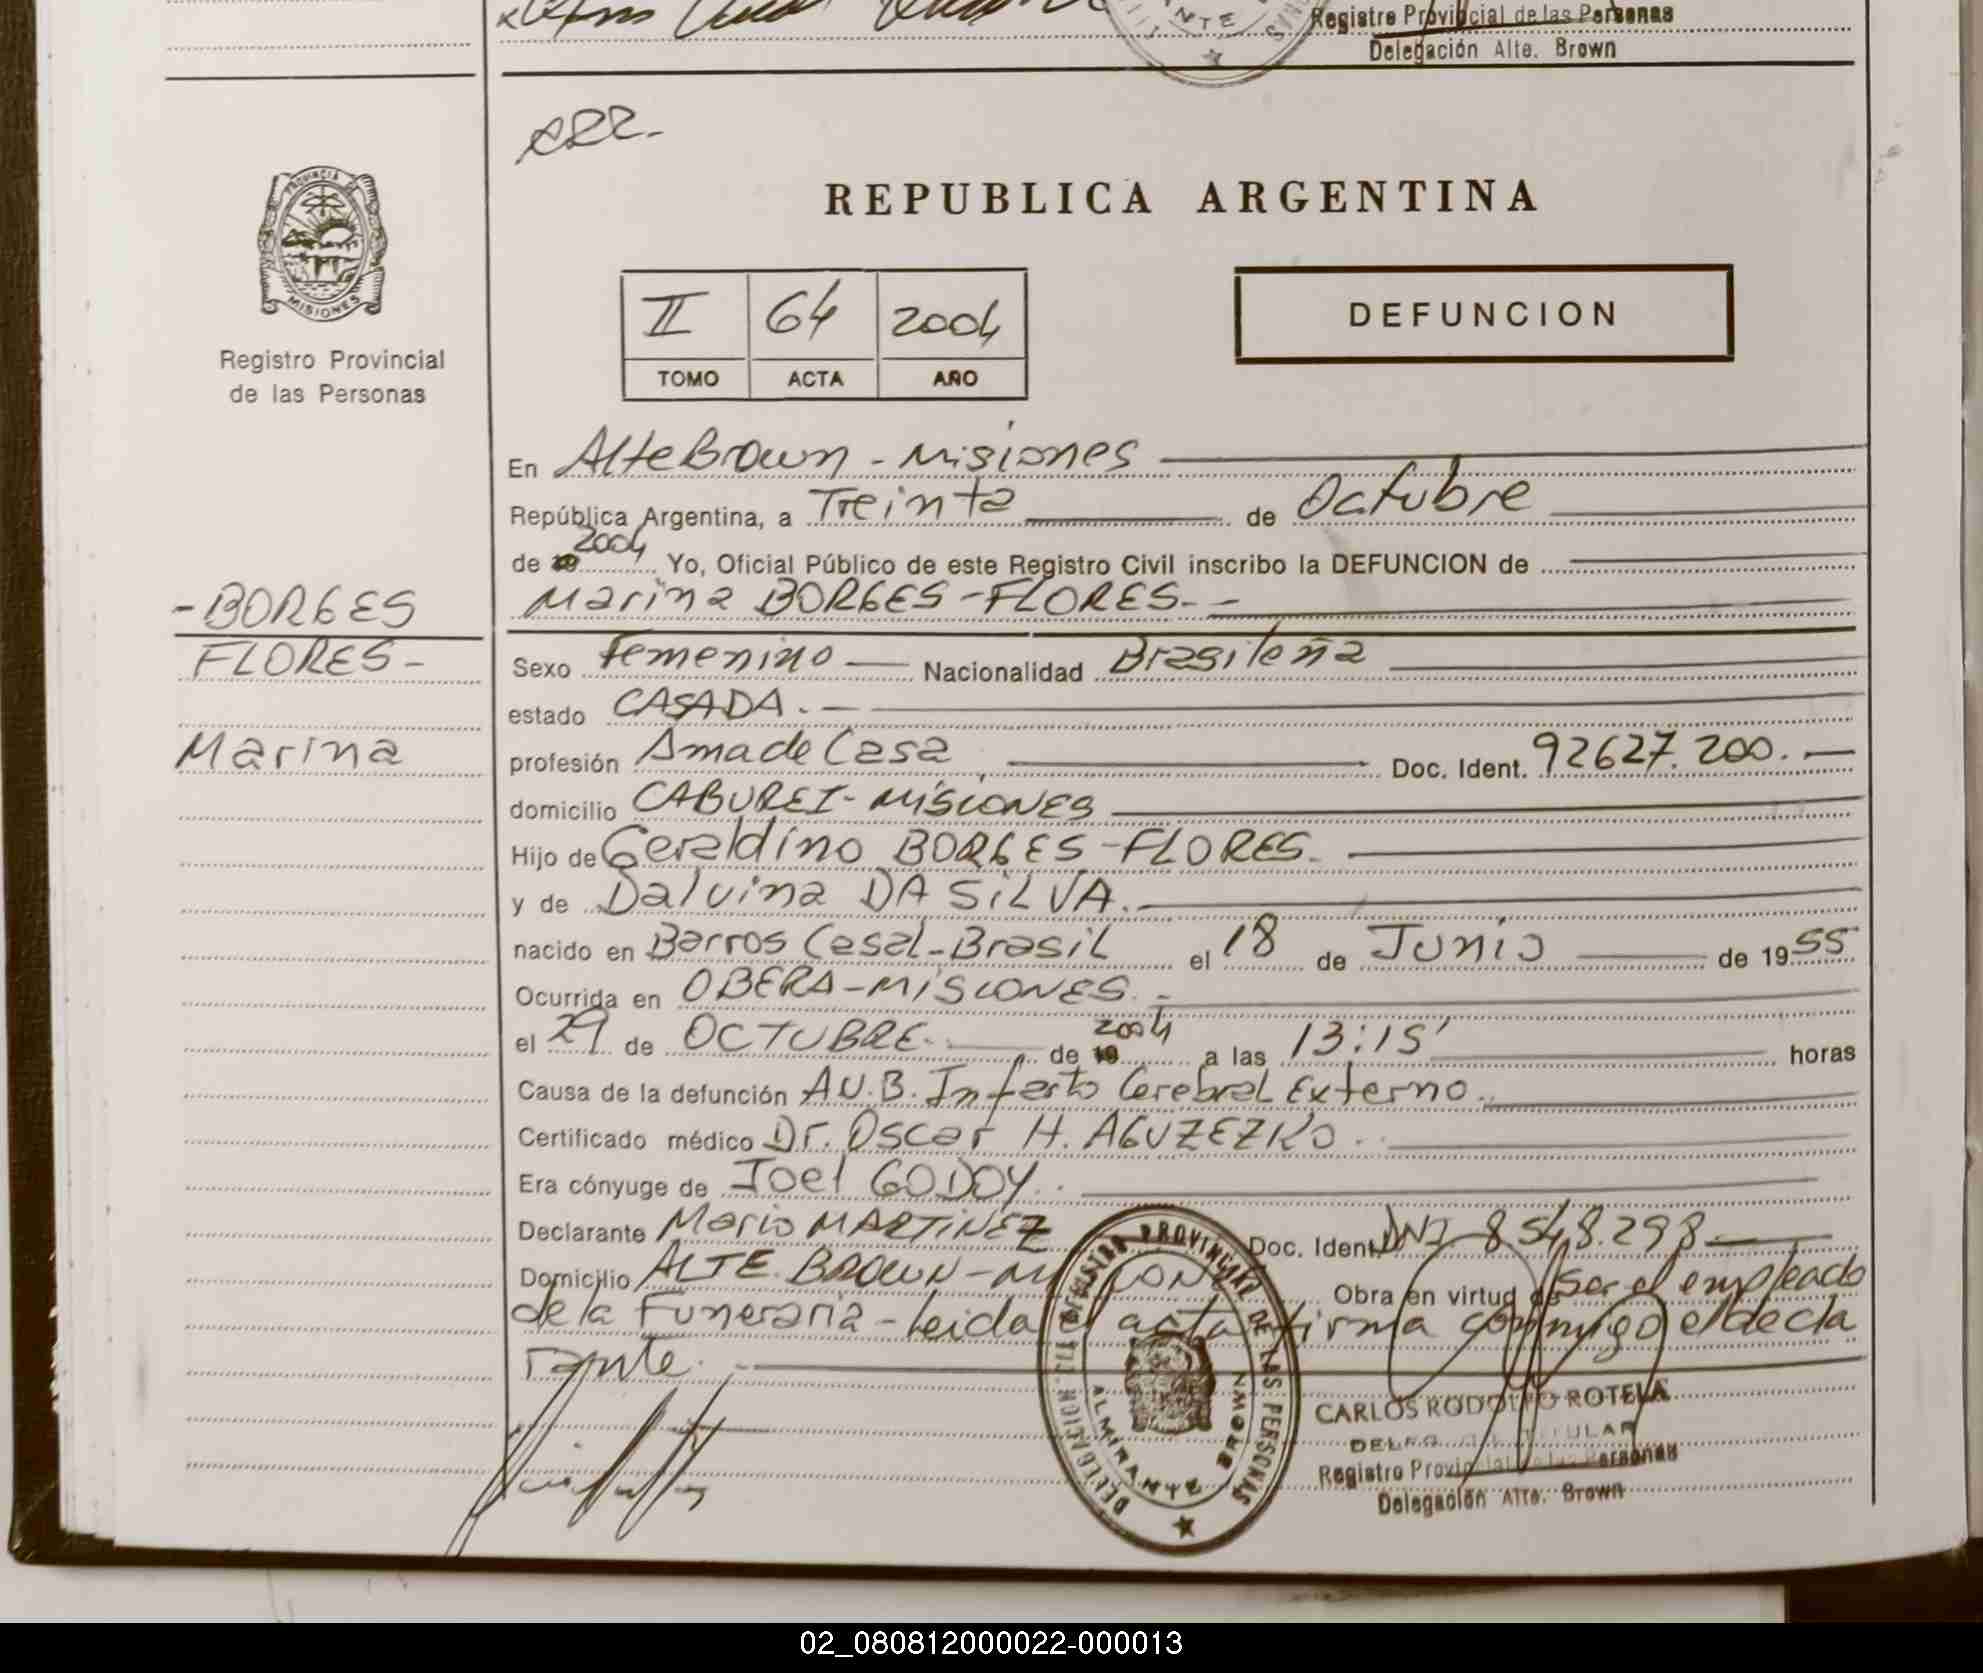 Registro Provincial de las Personas
Delegación Alte. Brown
REPUBLICA ARGENTINA
PROVINCIA DE
MISIONES
Registro Provincial
de las Personas
II 64 2004
TOMO ACTA AÑO
DEFUNCION
-BORGES
FLORES-
Marina
En Alte Brown - Misiones
República Argentina, a Treinta de Octubre
de 19 2004 Yo, Oficial Público de este Registro Civil inscribo la DEFUNCION de
Marina BORGES-FLORES.-
Sexo Femenino Nacionalidad Brasileña
estado CASADA.-
profesión Ama de Casa Doc. Ident. 92627.200.-
domicilio CABUREI-MISIONES
Hijo de Geraldino BORGES-FLORES.
y de Dalvina DA SILVA.
nacido en Barros Casal-Brasil el 18 de Junio de 1955
Ocurrida en OBERA-MISIONES.-
el 29 de OCTUBRE. de 19 2004 a las 13:15' horas
Causa de la defunción Infarto Cerebral Externo.
Certificado médico Dr. Oscar H.
Era cónyuge de Joel GODOY.
Declarante Mario MARTINEZ Doc. Ident. DNI 8548.298
Domicilio ALTE. BROWN-MISIONES Obra en virtud de ser el empleado
de la Funeraria - Leida el acta firma conmigo el decla
rante.
REGISTRO PROVINCIAL DE LAS PERSONAS
DELEGACION
ALMIRANTE BROWN
CARLOS RODOLFO ROTELA
DELEGADO TITULAR
Registro Provincial de las Personas
Delegación Alte. Brown
02_080812000022-000013